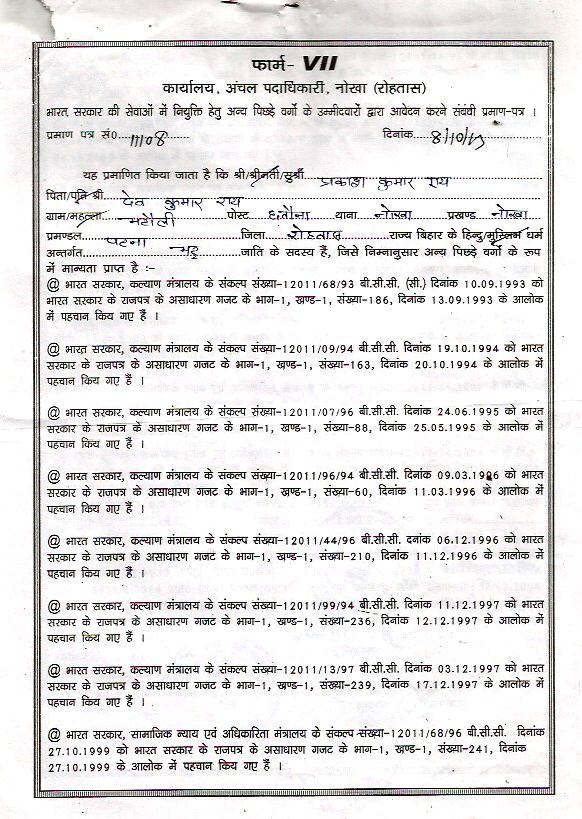 फार्म- VII
कार्यालय, अंचल पदाधिकारी, नोखा (रोहतास)
भारत सरकार की सेवाओं में नियुक्ति हेतु अन्य पिछड़े वर्गों के उम्मीदवारों द्वारा आवेदन करने संबंधी प्रमाण-पत्र ।
प्रमाण पत्र सं0 11108 दिनांक 8/10/13
यह प्रमाणित किया जाता है कि श्री/श्रीमती/सुश्री प्रकाश कुमार राय
पिता/पति श्री देव कुमार राय
ग्राम/महल्ला महौली पोस्ट थाना नोखा प्रखण्ड नोखा
प्रमण्डल पटना जिला रोहतास राज्य बिहार के हिन्दु/मुस्लिम धर्म
अन्तर्गत जाति के सदस्य हैं, जिसे निम्नानुसार अन्य पिछड़े वर्गो के रूप
में मान्यता प्राप्त है :-
@ भारत सरकार, कल्याण मंत्रालय के संकल्प संख्या-12011/68/93 बी.सी.सी. (सी.) दिनांक 10.09.1993 को
भारत सरकार के राजपत्र के असाधारण गजट के भाग-1, खण्ड-1, संख्या-186, दिनांक 13.09.1993 के आलोक
में पहचान किय गए हैं ।
@ भारत सरकार, कल्याण मंत्रालय के संकल्प संख्या-12011/09/94 बी.सी.सी. दिनांक 19.10.1994 को भारत
सरकार के राजपत्र के असाधारण गजट के भाग-1, खण्ड-1, संख्या-163, दिनांक 20.10.1994 के आलोक में
पहचान किय गए हैं ।
@ भारत सरकार, कल्याण मंत्रालय के संकल्प संख्या-12011/07/96 बी.सी.सी. दिनांक 24.06.1995 को भारत
सरकार के राजपत्र के असाधारण गजट के भाग-1, खण्ड-1, संख्या-88, दिनांक 25.05.1995 के आलोक में
पहचान किय गए हैं ।
@ भारत सरकार, कल्याण मंत्रालय के संकल्प संख्या-12011/96/94 बी.सी.सी. दिनांक 09.03.1996 को भारत
सरकार के राजपत्र के असाधारण गजट के भाग-1, खण्ड-1, संख्या-60, दिनांक 11.03.1996 के आलोक में
पहचान किय गए हैं ।
@ भारत सरकार, कल्याण मंत्रालय के संकल्प संख्या-12011/44/96 बी.सी.सी. दनांक 06.12.1996 को भारत
सरकार के राजपत्र के असाधारण गजट के भाग-1, खण्ड-1, संख्या-210, दिनांक 11.12.1996 के आलोक में
पहचान किय गए हैं ।
@ भारत सरकार, कल्याण मंत्रालय के संकल्प संख्या-12011/99/94 बी.सी.सी. दिनांक 11.12.1997 को भारत
सरकार के राजपत्र के असाधारण गजट के भाग-1, खण्ड-1, संख्या-236, दिनांक 12.12.1997 के आलोक में
पहचान किय गए हैं ।
@ भारत सरकार, कल्याण मंत्रालय के संकल्प संख्या-12011/13/97 बी.सी.सी. दिनांक 03.12.1997 को भारत
सरकार के राजपत्र के असाधारण गजट के भाग-1, खण्ड-1, संख्या-239, दिनांक 17.12.1997 के आलोक में
पहचान किय गए हैं ।
@ भारत सरकार, सामाजिक न्याय एवं अधिकारिता मंत्रालय के संकल्प संख्या-12011/68/96 बी.सी.सी. दिनांक
27.10.1999 को भारत सरकार के राजपत्र के असाधारण गजट के भाग-1, खण्ड-1, संख्या-241, दिनांक
27.10.1999 के आलोक में पहचान किय गए हैं ।